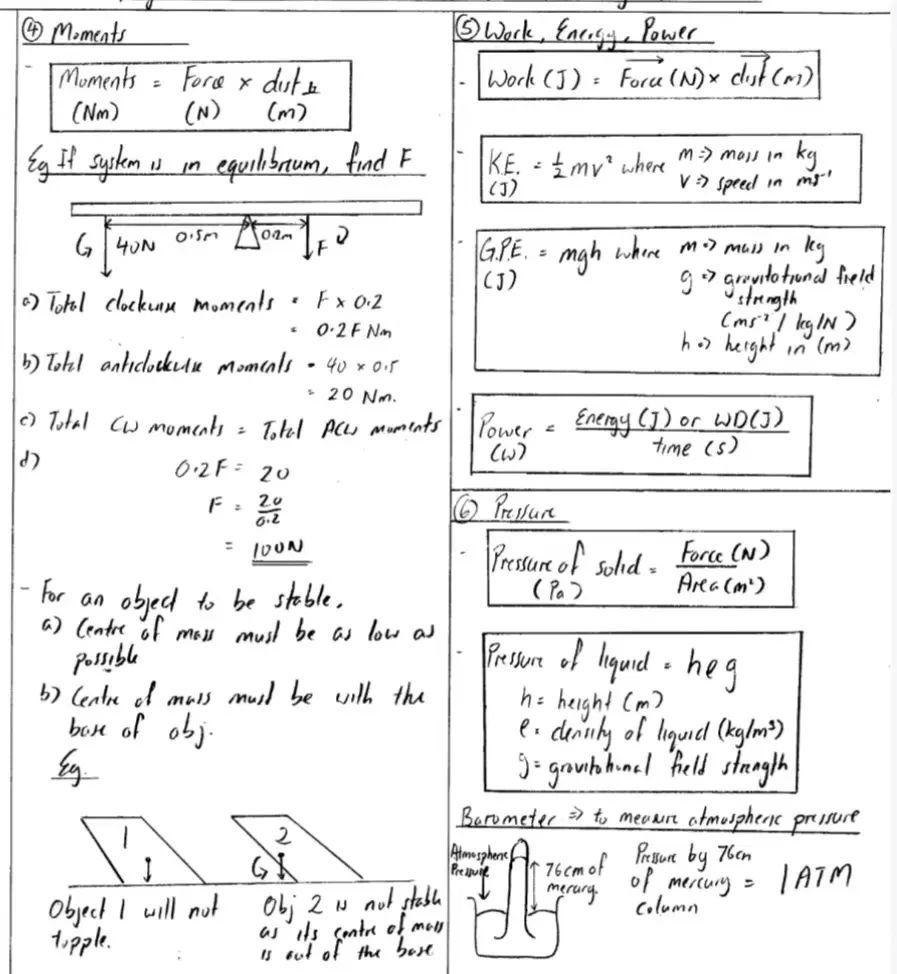 ④ Moments
- Moments = Force × dist ⊥
(Nm) (N) (m)
Eg If system is in equilibrium, find F
40N 0.5m 0.2m F
a) Total clockwise moments = F × 0.2
= 0.2F Nm
b) Total anticlockwise moments = 40 × 0.5
= 20 Nm.
c) Total CW moments = Total ACW moments
d) 0.2F = 20
F = 20/0.2
= 100N
- For an object to be stable,
a) Centre of mass must be as low as
possible
b) Centre of mass must be with the
base of obj.
Eg.
1 2
Object 1 will not
topple.
Obj 2 is not stable
as its centre of mass
is out of the base
⑤ Work, Energy, Power
- Work (J) = Force (N) × dist (m)
- K.E. = ½ mv² where m => mass in kg
(J) v => speed in ms⁻¹
- G.P.E. = mgh where m => mass in kg
(J) g => gravitational field
strength
(ms⁻² / kg/N)
h => height in (m)
- Power = Energy (J) or WD(J) / time (s)
(W)
⑥ Pressure
- Pressure of solid = Force (N) / Area (m²)
(Pa)
- Pressure of liquid = hρg
h = height (m)
ρ = density of liquid (kg/m³)
g = gravitational field strength
Barometer => to measure atmospheric pressure
Atmospheric
Pressure
76cm of
mercury
Pressure by 76cm
of mercury = 1 ATM
column